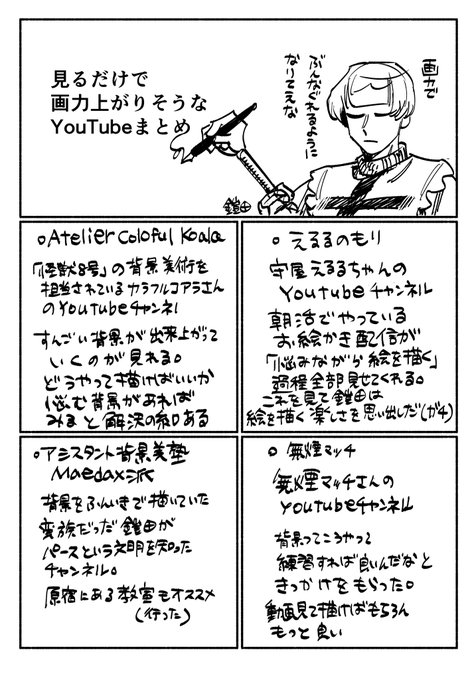 見るだけで
画力上がりそうな
YouTubeまとめ
画力で
ぶんなぐれるように
なりてえな
鎧田
○Atelier Coloful Koala
「怪獣8号」の背景美術を
担当されているカラフルコアラさん
のYoutubeチャンネル
すんごい背景が出来上がって
いくのが見れる。
どうやって描けばいいか
悩む背景があれば
みると解決の糸口ある
○えるるのもり
守屋えるるちゃんの
Youtubeチャンネル
朝活でやっている
お絵かき配信が
「悩みながら絵を描く」
過程全部見せてくれる。
これを見て鎧田は
絵を描く楽しさを思い出しだ(ガチ)
○アシスタント背景美塾
Maedax派
背景をふんいきで描いていた
蛮族だった鎧田が
パースという文明を知った
チャンネル。
原宿にある教室もオススメ
(行った)
○無煙マッチ
無煙マッチさんの
Youtubeチャンネル
背景ってこうやって
練習すれば良いんだなと
きっかけをもらった。
動画見て描けばもちろん
もっと良い